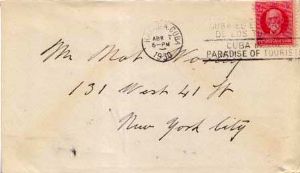 HABANA, CUBA
ABR 7
6-PM
1930
CUBA
DE LOS
CUBA
PARADISE OF TOURIST
Mr Mat
131 West 41 St
New York City